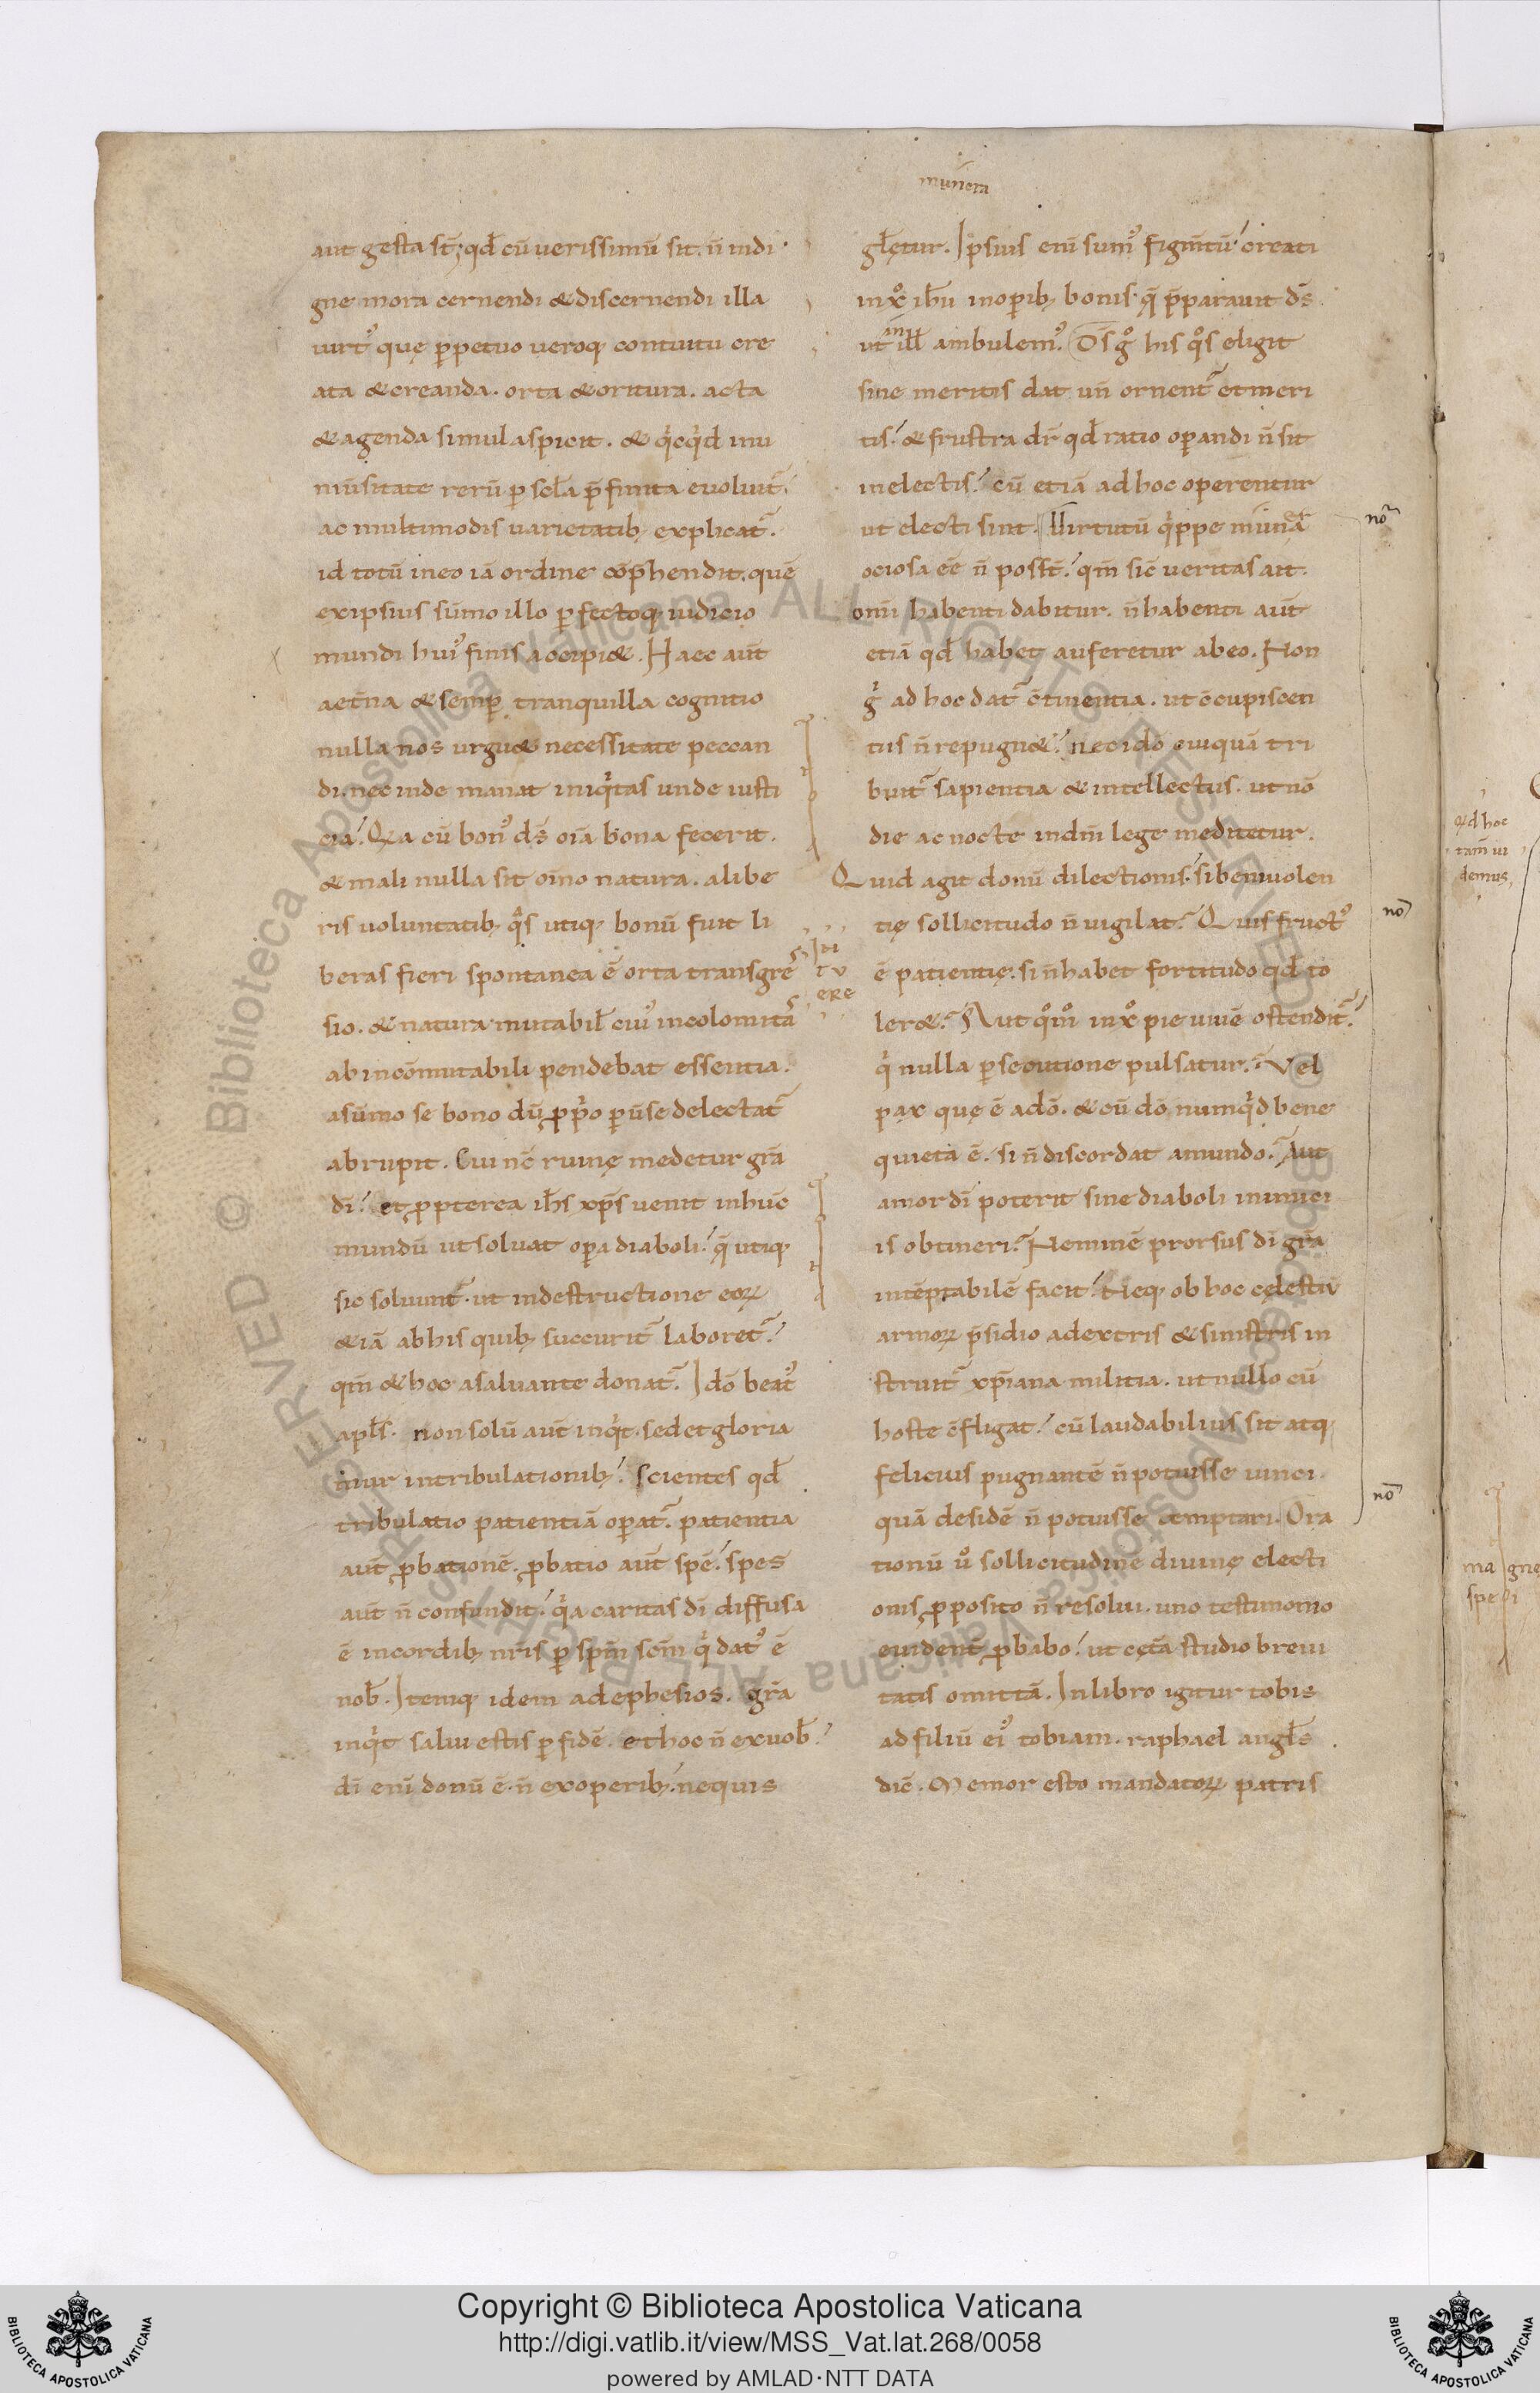 munera
aut gesta st̄; qd̄ cū uerissimū sit. n̄ indi
gne mora cernendi & discernendi illa
uirt᾿ quę ꝑpetuo ueroq; contuitu cre
ata & creanda. orta & oritura. acta
& agenda simul aspicit. & qͥcqͥd inu
niu̅sitate rerū ꝑ scl̄a p̄finita euoluit᷑.
ac multimodis uarietatib; explicat᷑.
id totū in eo iā ordine cōp̄hendit. quē
ex ipsius sūmo illo ꝑfectoq; iudicio
mundi hui᾿ finis accipi&. Haec aūt
aet̄na & semꝑ tranquilla cognitio
nulla nos urgu& necessitate peccan
di. nec inde manat iniqͥtas unde iusti
cia. Qa cū bon᾿ ds̄ oīa bona fecerit.
& mali nulla sit oīno natura. a libe
ris uoluntatib; qͣs utiq; bonū fuit li
beras fieri spontanea ē orta transgres
sio. & natura mutabil̄ cui᾿ incolomitas
ab incōmutabili pendebat essentia.
a sūmo se bono dū ꝓpͥo ꝑuse delectat᷑
abrupit. Cui nc̄ ruinę medetur gr̄a
dī. et ꝓpterea ih̄s xp̄s uenit in hūc
mundū ut soluat oꝑa diaboli. q̄ utiq;
sic soluunt᷑. ut in destructione eoꝝ
&iā ab his quib; succurit᷑ laboret᷑.
qm̄ & hoc a saluante donat᷑. Idō beat᾿
apl̄s. non solū aūt inqͥt. sed et gloria
mur in tribulationib;. scientes qd̄
tribulatio patientiā oꝑat᷑. patientia
aūt ꝓbationē. ꝓbatio aūt spē. spes
aūt n̄ confundit. qͥa caritas dī diffusa
ē in cordib; nr̄is ꝑ spm̄ scm̄ qͥ dat᾿ ē
nob̄. Itemq; idem ad ephesios. gr̄a
inqͥt salui estis ꝑ fidē. et hoc n̄ ex uob̄.
dī enī donū ē. n̄ ex operib;. ne quis
In
tu
ere
gl̄etur. Ipsius enī sum᾿ figm̄tū creati
in xͦ ih̄u in oꝑib; bonis. q̄ p̄parauit ds̄
ut in ill̄ ambulem᾿. Ds̄ gͦ his qͦs eligit
sine meritis dat un̄ ornent᷑ et meri
tis. & frustra dr̄ qd̄ ratio oꝑandi n̄ sit
in electis. cū etiā ad hoc operentur
ut electi sint. Uirtutū qͥppe munͣa
ociosa eē n̄ possт̄. qm̄ sic̄ ueritas ait.
omī habenti dabitur. n̄ habenti aūt
etiā qd̄ habet auferetur ab eo. Non
gͥ ad hoc dat᷑ c̄tinentia. ut c̄cupiscen
tiis n̄ repugn&. nec idō cuiquā tri
buit᷑ sapientia & intellectus. ut nō
die ac nocte in dn̄i lege meditetur.
Quid agit donū dilectionis. si beniuolen
tię sollicitudo n̄ uigilat. Quis fruct᾿
ē patientię. si n̄ habet fortitudo qd̄ to
ler&. Aut qͦm̊ in xͦ pie uiuē ostendit᷑.
qͥ nulla ꝑsecutione pulsatur. Vel
pax quę ē a dō. & cū dō numqͥd bene
quieta ē. si n̄ discordat a mundo. Aut
amor dī poterit sine diaboli inimici
is obtineri. Neminē prorsus dī gr̄a
intēptabilē facit. Neq; ob hoc cęlestiū
armoꝝ p̄sidio a dextris & sinistris in
struit᷑ xp̄iana militia. ut nullo cū
hoste c̄fligat. cū laudabilius sit atq;
felicius pugnantē n̄ potuisse uinci.
quā desidē n̄ potuisse temptari. Ora
tionū uͦ sollicitudine diuinę electi
onis ꝓposito n̄ resolui. uno testimonio
euident̄ ꝓbabo. ut cęt̄a studio breui
tatis omittā. In libro igitur tobis
ad filiū ei᾿ tobiam. raphael angl̄s
dic̄. Memor esto mandatoꝝ patris
noͣ
nō
nō
qd hoc
tam̄ ui
demus
magnę
spei
© Biblioteca Apostolica Vaticana ALL RIGHTS RESERVED © Biblioteca Apostolica Vaticana ALL RIGHTS RESERVED
BIBLIOTECA APOSTOLICA VATICANA
Copyright © Biblioteca Apostolica Vaticana
http://digi.vatlib.it/view/MSS_Vat.lat.268/0058
powered by AMLAD·NTT DATA
BIBLIOTECA APOSTOLICA VATICANA